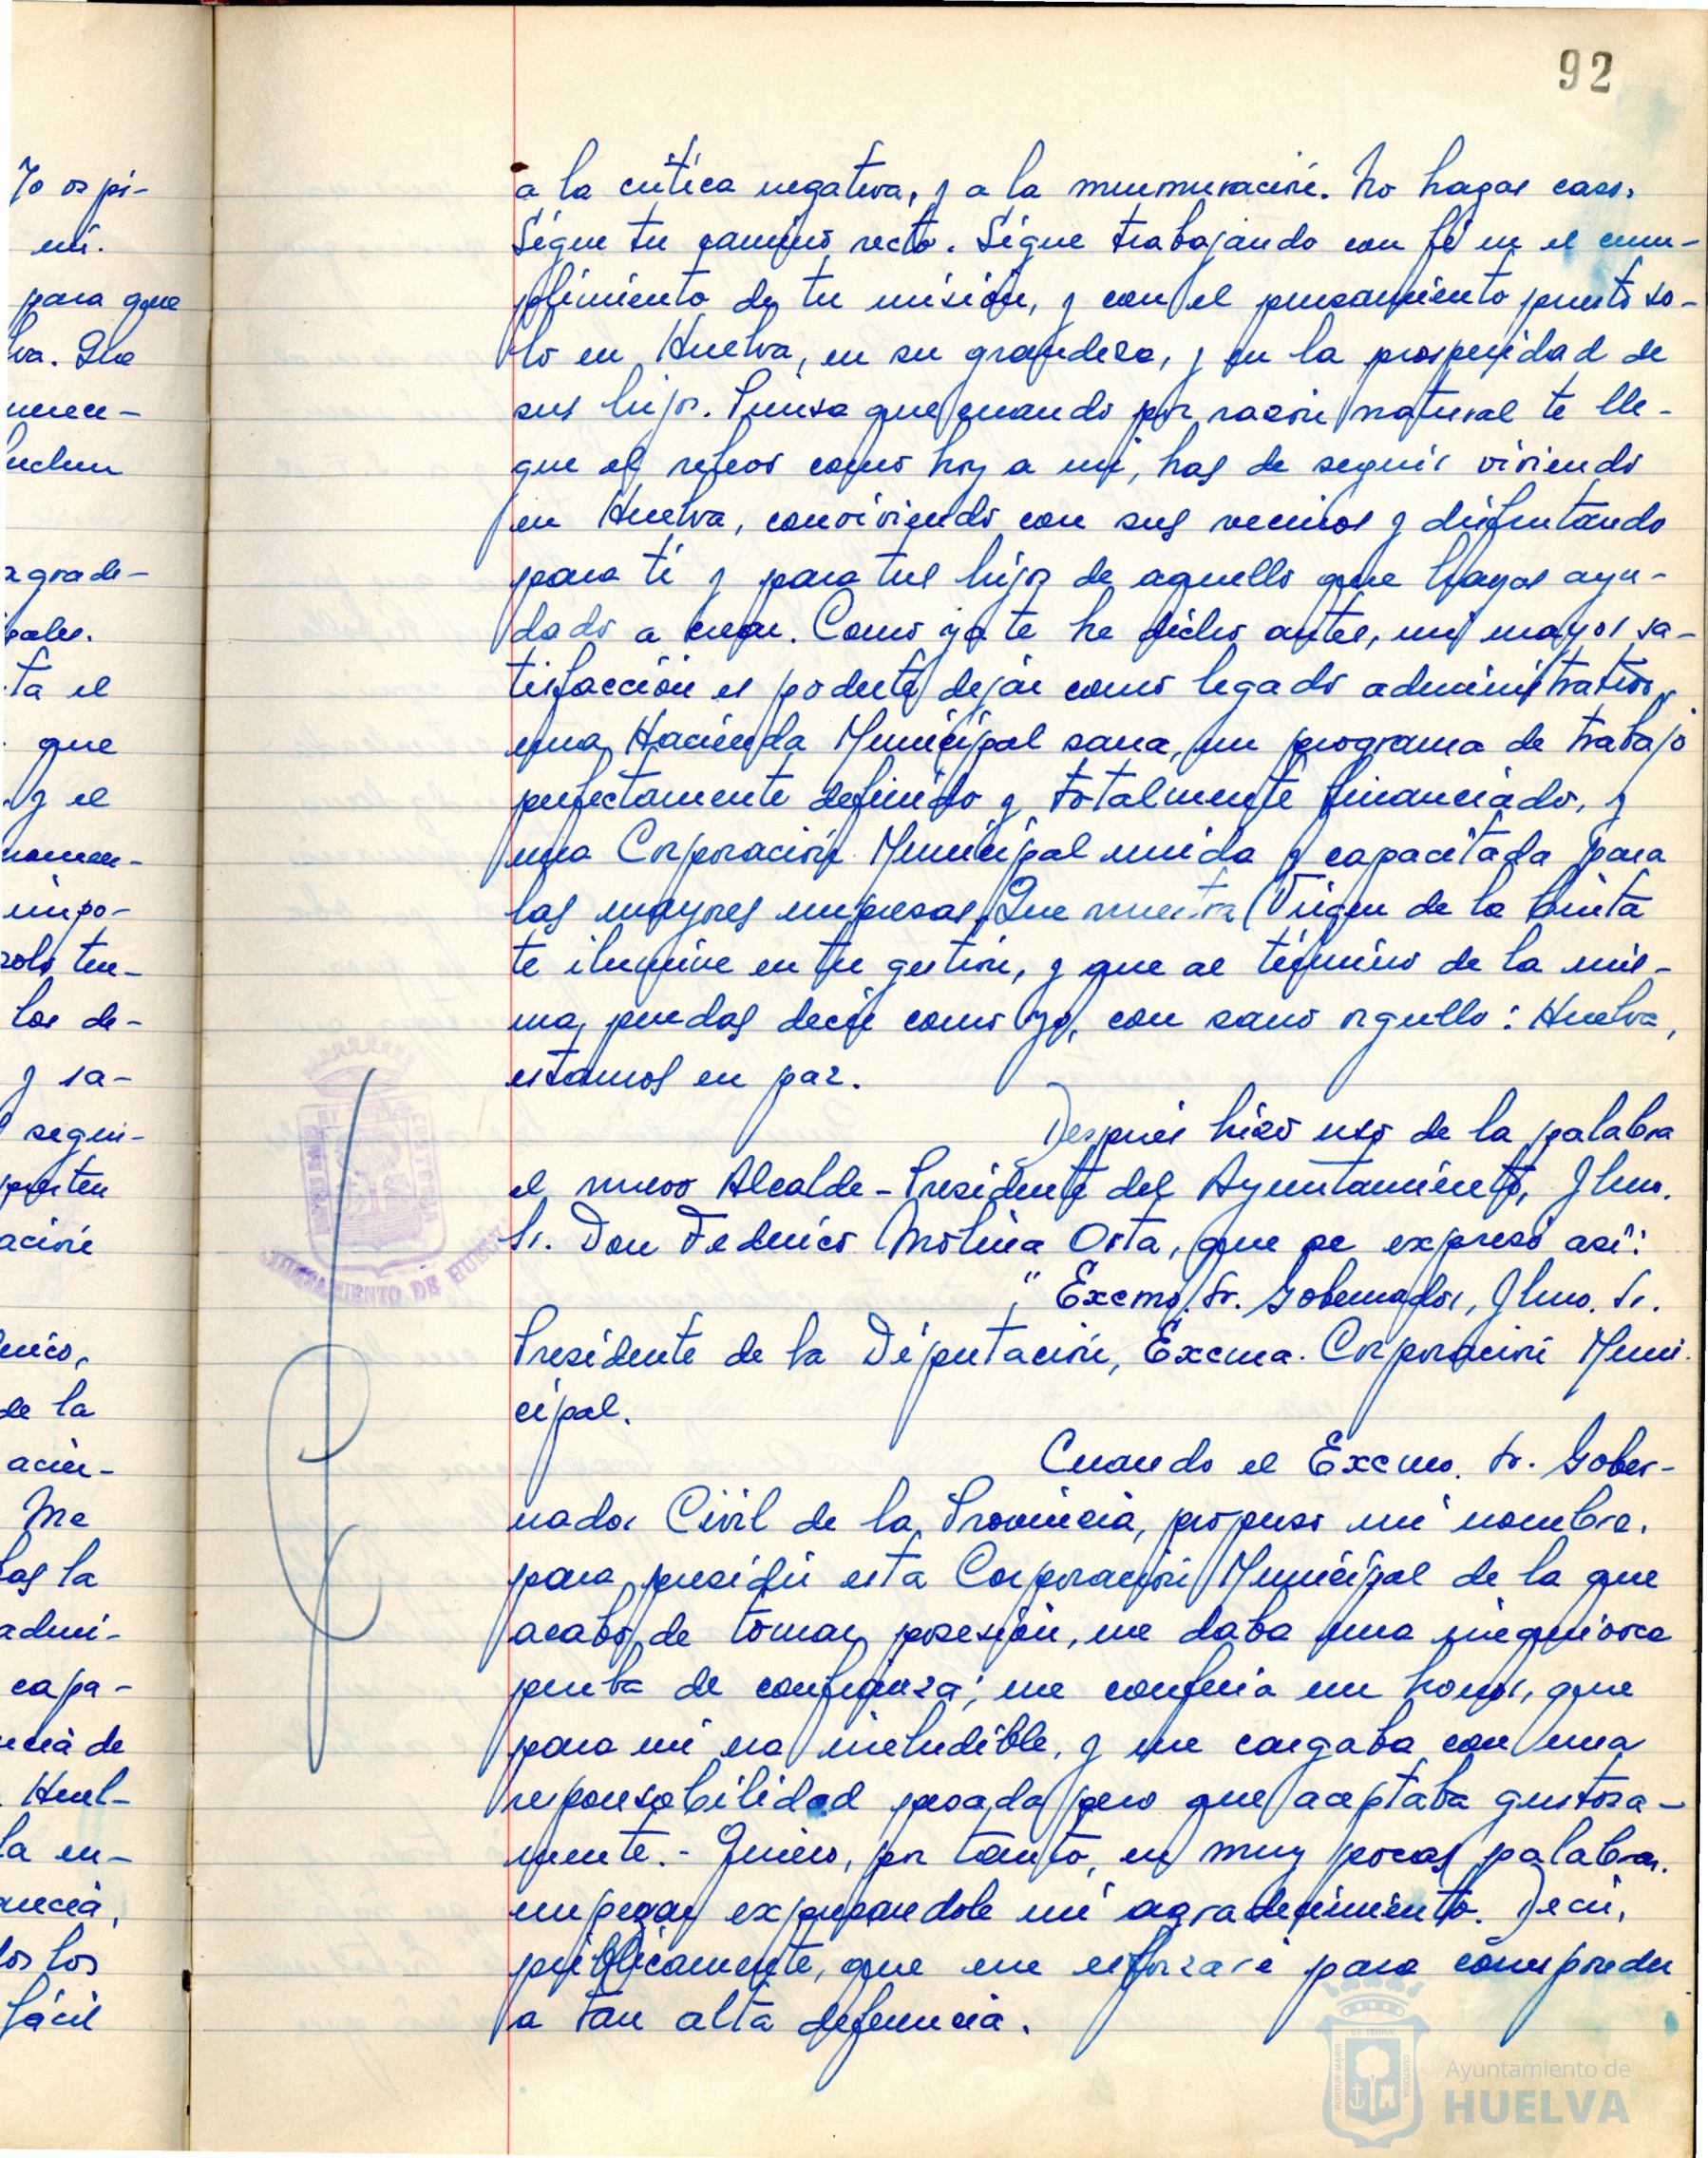 92
a la crítica negativa, y a la murmuración. No hagas caso.
Sigue tu camino recto. Sigue trabajando con fé en el cum-
plimiento de tu misión, y con el pensamiento puesto so-
lo en Huelva, en su grandeza, y en la prosperidad de
sus hijos. Piensa que cuando por razón natural te lle-
gue el relevo como hoy a mi, has de seguir viviendo
en Huelva, conviviendo con sus vecinos y disfrutando
para ti y para tus hijos de aquello que hayas ayu-
dado a crear. Como ya te he dicho antes, mi mayor sa-
tisfacción es poderte dejar como legado administrativo,
una Hacienda Municipal sana, un programa de trabajo
perfectamente definido y totalmente financiado, y
una Corporación Municipal unida y capacitada para
las mayores empresas. Que nuestra Virgen de la Cinta
te ilumine en tu gestión, y que al término de la mis-
ma, puedas decir como yo, con sano orgullo: Huelva,
estamos en paz.
Después hizo uso de la palabra
el nuevo Alcalde-Presidente del Ayuntamiento, Ilmo.
Sr. Don Federico Molina Orta, que se expresó así:
"Excmo. Sr. Gobernador, Ilmo. Sr.
Presidente de la Diputación, Excma. Corporación Muni-
cipal.
Cuando el Excmo. Sr. Gober-
nador Civil de la Provincia, propuso mi nombre,
para presidir esta Corporación Municipal de la que
acabo de tomar posesión, me daba una inequívoca
prueba de confianza; me confería un honor, que
para mi era ineludible, y me cargaba con una
responsabilidad pesada pero que aceptaba gustosa-
mente.- Quiero, por tanto, en muy pocas palabras,
empezar expresandole mi agradecimiento. Decir,
públicamente, que me esforzaré para corresponder
a tan alta deferencia.
AYUNTAMIENTO DE HUELVA
Ayuntamiento de
HUELVA
Yo os pi-
mí.
para que
lva. Que
agrade-
ta el
que
y el
impo-
solo ten-
los de-
y sa-
segui-
de la
Me
capa-
Huel-
la en-
los los
fácil